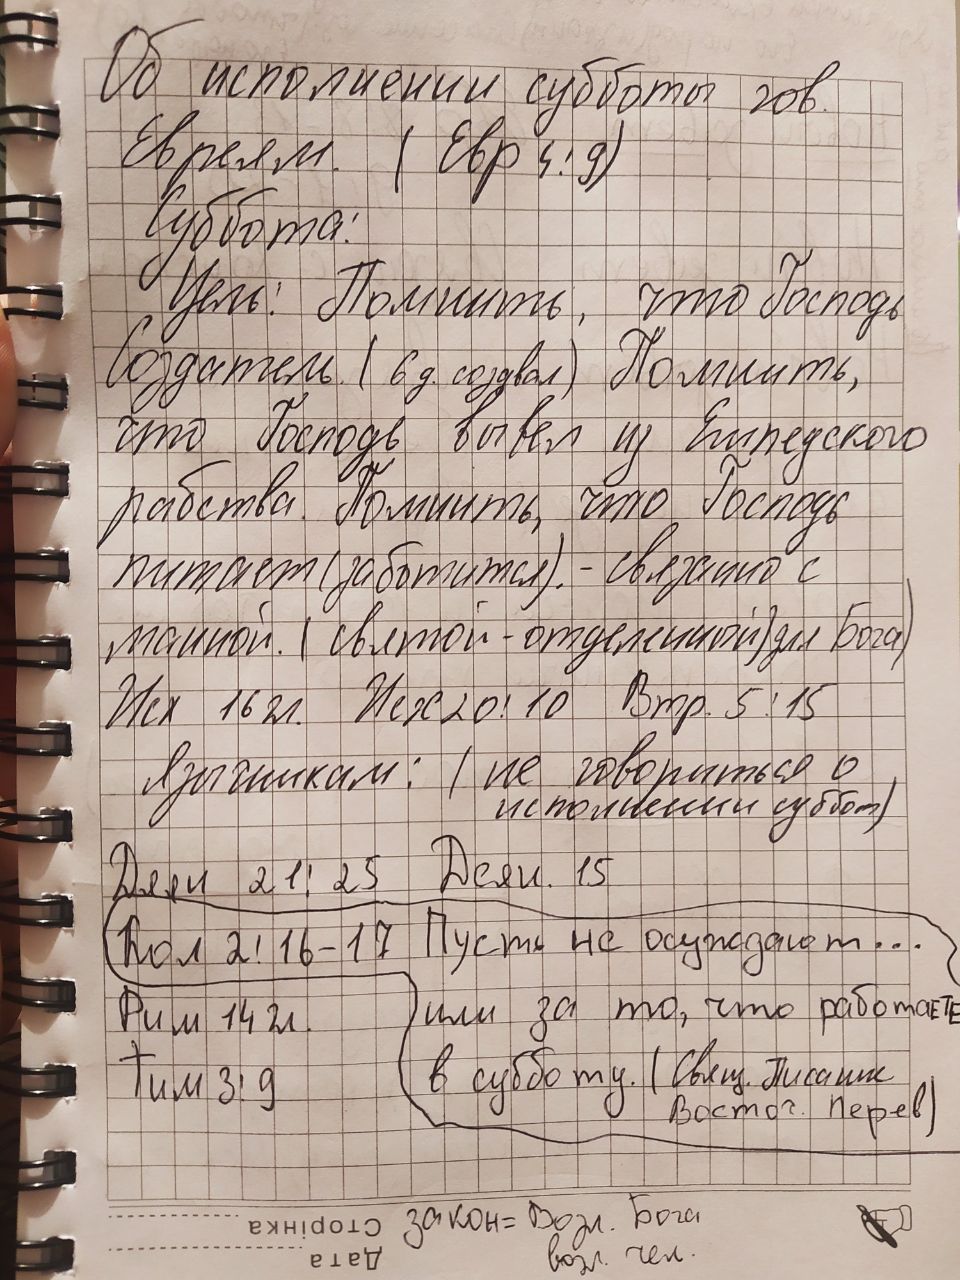 Об исполнении субботы гов.
Евреям. ( Евр 4:9)
Суббота:
Цель: Помнить, что Господь
Создатель. ( 6 д. создвал) Помнить,
что Господь вывел из Египедского
рабства. Помнить, что Господь
питает (заботится). - связано с
манной. ( святой - отделенной) для Бога)
Исх 16 гл. Исх 20:10 Втр. 5:15
Язычникам: ( не говориться о
исполнении суббот)
Деян 21:25 Деян. 15
Кол 2:16-17 Пусть не осуждают...
Рим 14 гл. или за то, что работаете
Тим 3:9 в субботу. ( Свящ. Писание
Восточ. перев)
Сторінка закон = Возл. Бога
Дата возл. чел.